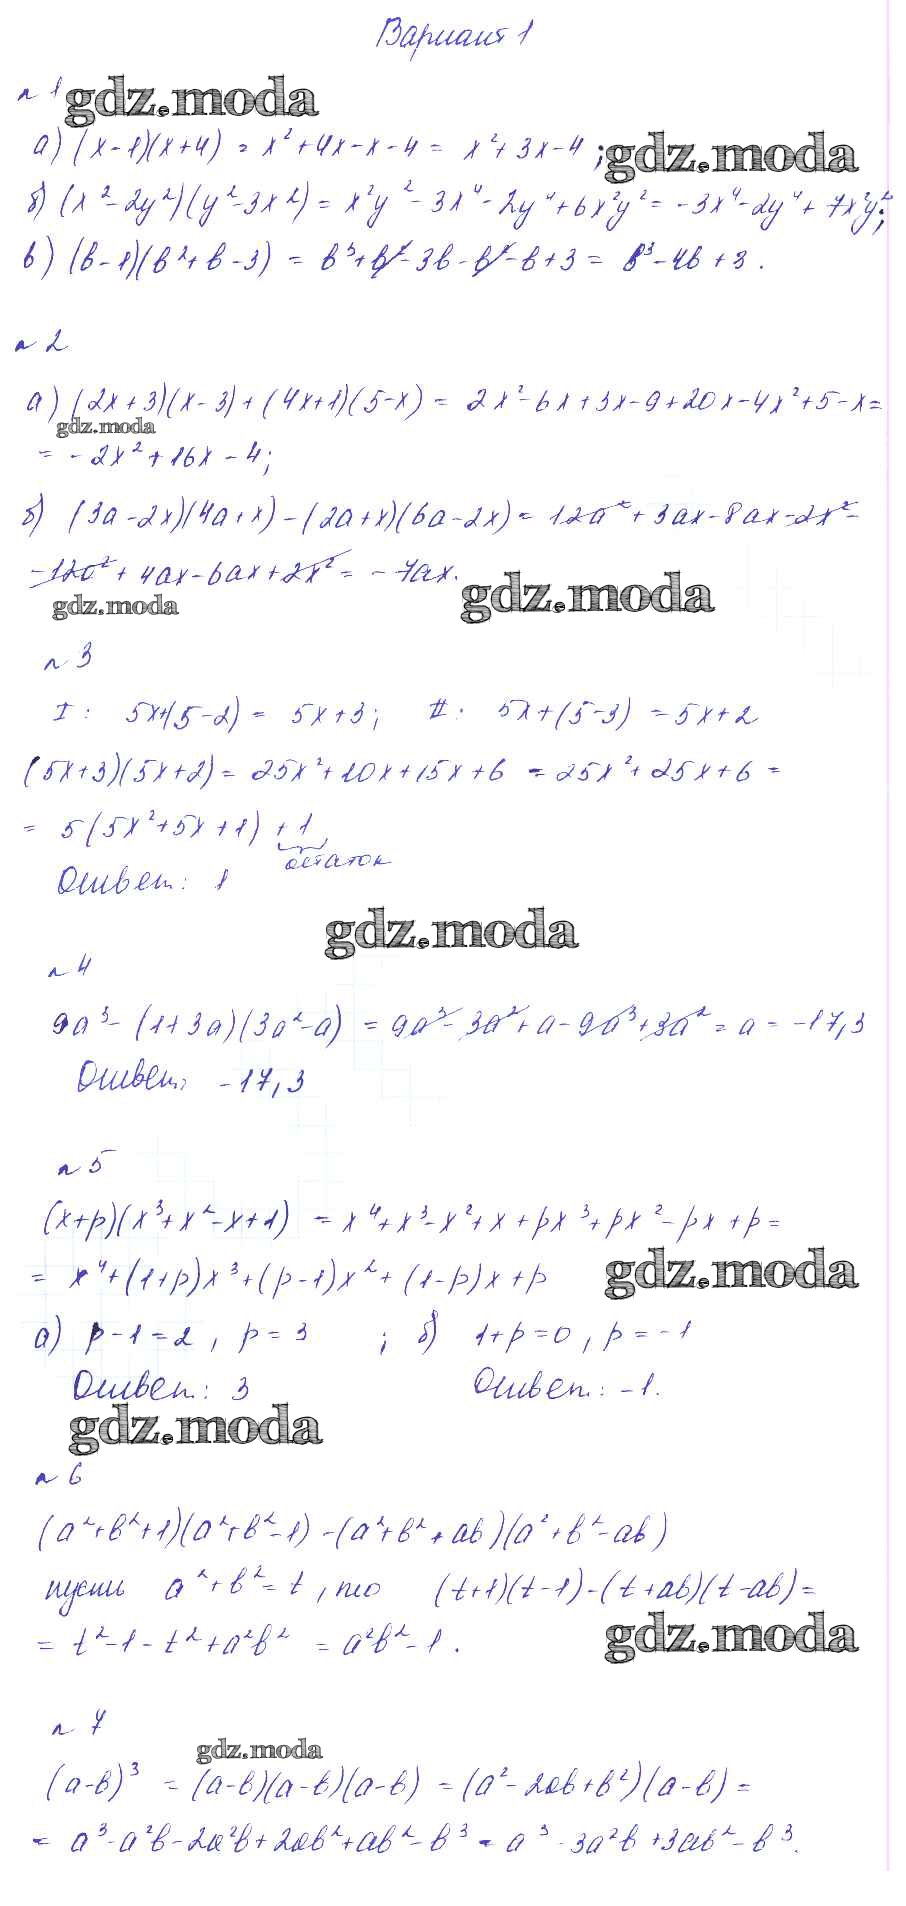 Вариант 1
№ 1
gdz.moda
а) (x-1)(x+4) = x² + 4x - x - 4 = x² + 3x - 4 ;
gdz.moda
б) (x² - 2y²)(y² - 3x²) = x²y² - 3x⁴ - 2y⁴ + 6x²y² = -3x⁴ - 2y⁴ + 7x²y²;
в) (b-1)(b² + b - 3) = b³ + b² - 3b - b² - b + 3 = b³ - 4b + 3 .
№ 2
а) (2x + 3)(x - 3) + (4x+1)(5-x) = 2x² - 6x + 3x - 9 + 20x - 4x² + 5 - x =
gdz.moda
= -2x² + 16x - 4;
б) (3a - 2x)(4a + x) - (2a + x)(6a - 2x) = 12a² + 3ax - 8ax - 2x² -
- 12a² + 4ax - 6ax + 2x² = -7ax.
gdz.moda
gdz.moda
№ 3
I : 5x+(5-2) = 5x + 3 ; II : 5x + (5-3) = 5x + 2
(5x+3)(5x+2) = 25x² + 10x + 15x + 6 = 25x² + 25x + 6 =
= 5(5x² + 5x + 1) + 1
остаток
Ответ: 1
gdz.moda
№ 4
9a³ - (1+3a)(3a² - a) = 9a³ - 3a² + a - 9a³ + 3a² = a = -17,3
Ответ: -17,3
№ 5
(x+p)(x³ + x² - x + 1) = x⁴ + x³ - x² + x + px³ + px² - px + p =
= x⁴ + (1+p)x³ + (p-1)x² + (1-p)x + p
gdz.moda
а) p - 1 = 2 , p = 3 ; б) 1 + p = 0 , p = -1
Ответ: 3 Ответ: -1.
gdz.moda
№ 6
(a² + b² + 1)(a² + b² - 1) - (a² + b² + ab)(a² + b² - ab)
пусть a² + b² = t , то (t+1)(t-1) - (t+ab)(t-ab) =
= t² - 1 - t² + a²b² = a²b² - 1 .
gdz.moda
№ 7
gdz.moda
(a-b)³ = (a-b)(a-b)(a-b) = (a² - 2ab + b²)(a-b) =
= a³ - a²b - 2a²b + 2ab² + ab² - b³ = a³ - 3a²b + 3ab² - b³.